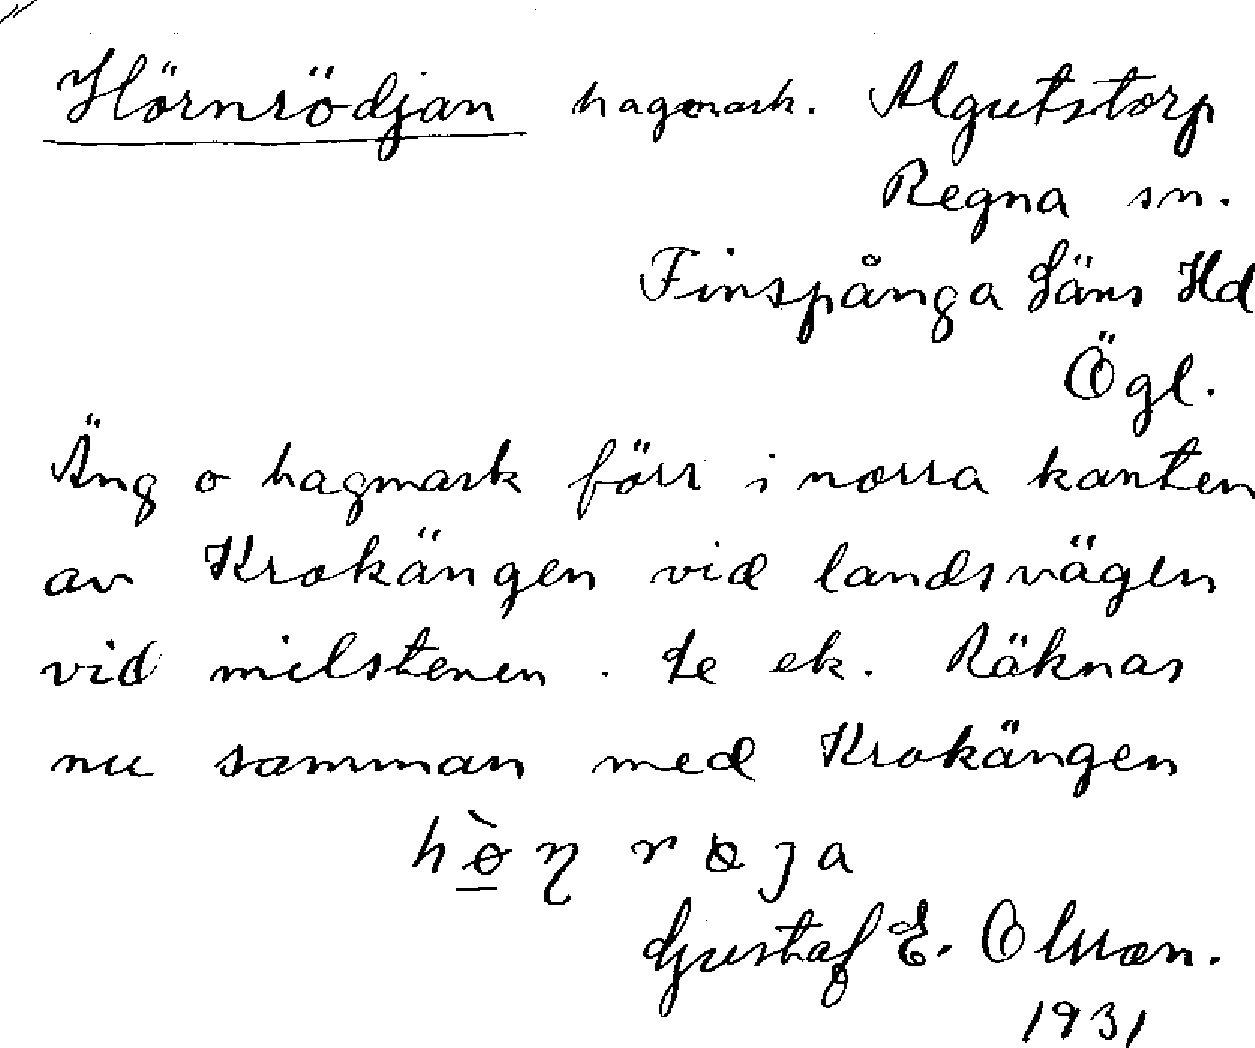 Hörnrödjan hagmark. Algutstorp
Regna sn.
Finspånga Läns Hd
Ögl.
Äng o hagmark förr i norra kanten
av Krokängen vid landsvägen
vid milstenen. Le ek. Räknas
nu samman med Krokängen
Gustaf E. Olsson.
1931